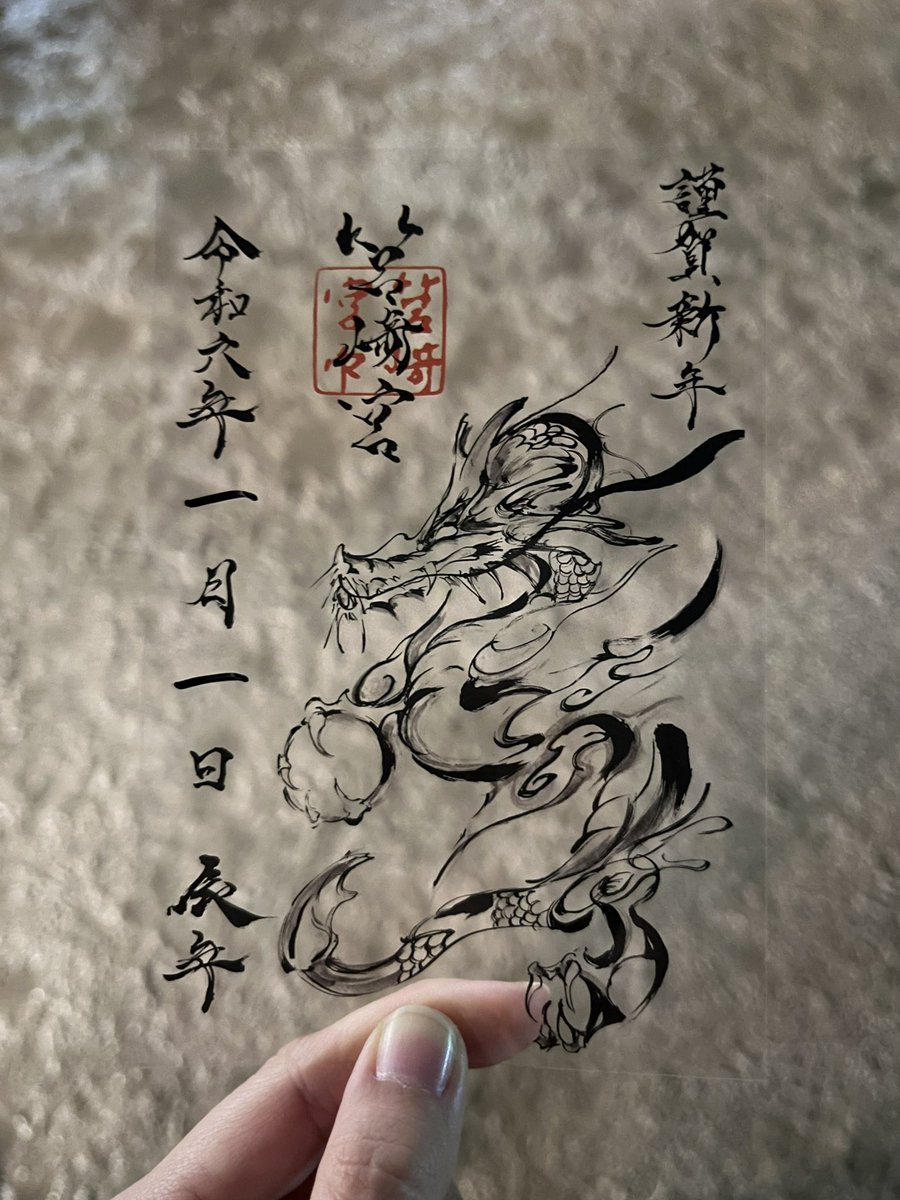 謹賀新年
筥崎宮
筥崎
宮印
令和六年一月一日 辰年